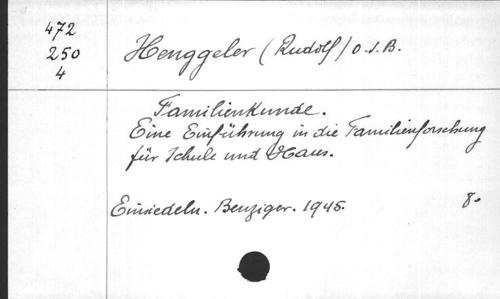 472
250
4
Henggeler (Rudolf) O.S.B.
Familienkunde.
Eine Einführung in die Familienforschung
für Schule und Haus.
Einsiedeln. Benziger. 1945. 8°